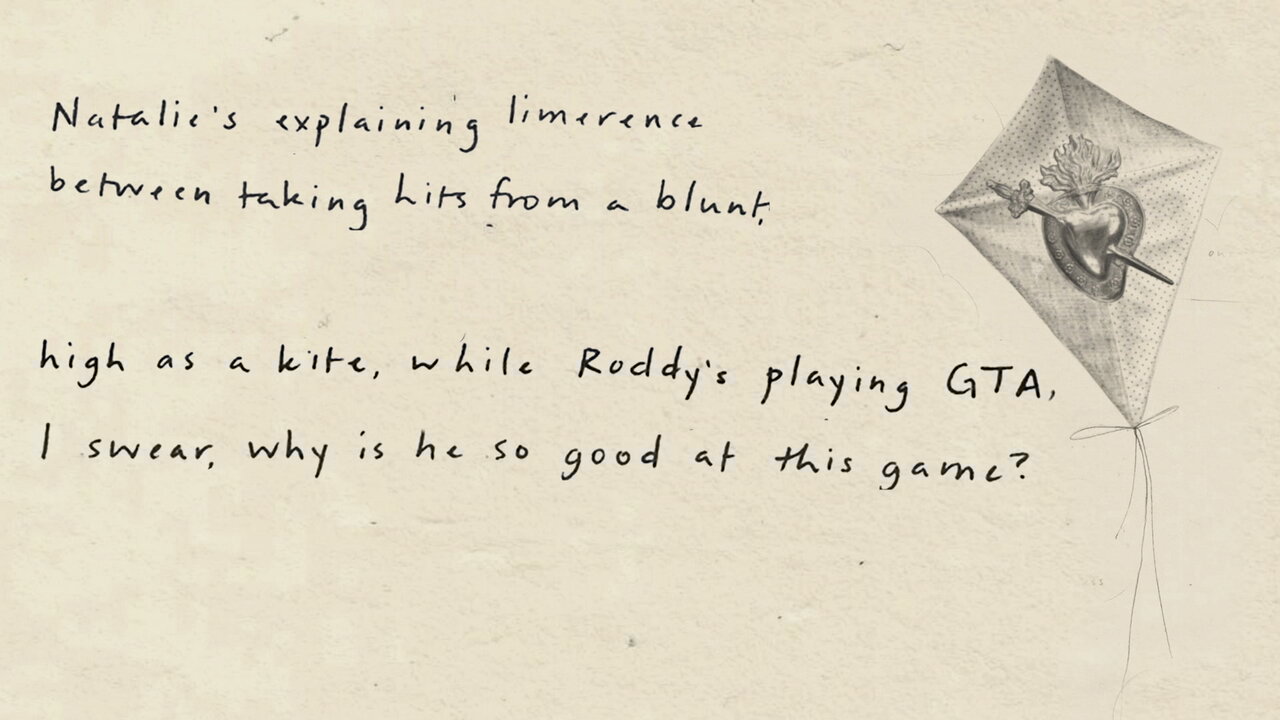 Natalie's explaining limerence
between taking hits from a blunt,
high as a kite, while Roddy's playing GTA,
I swear, why is he so good at this game?